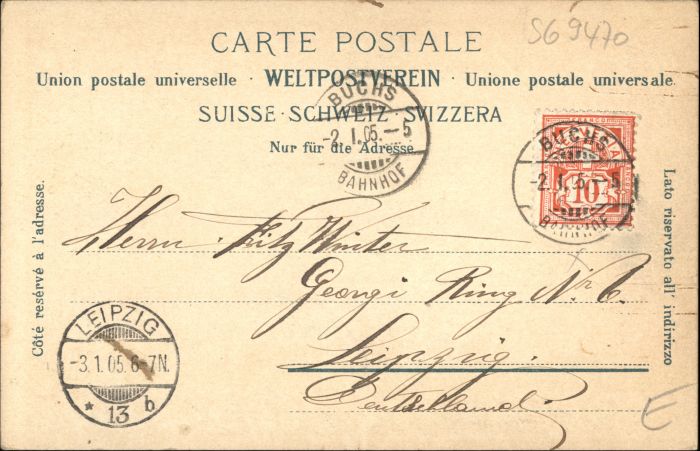 SG 9470
CARTE POSTALE
Union postale universelle · WELTPOSTVEREIN · Unione postale universale
SUISSE · SCHWEIZ · SVIZZERA
Nur für die Adresse
BUCHS
-2.I.05.-5
BAHNHOF
BUCHS
-2.I.05.-5
BAHNHOF
FRANCO
10
Côté resérvé à l'adresse.
Lato riservato all' indirizzo
Herrn Fritz Winter
Georgi Ring Nr 6.
Leipzig.
Deutschland
LEIPZIG
-3.1.05.6-7N.
* 13 b
E